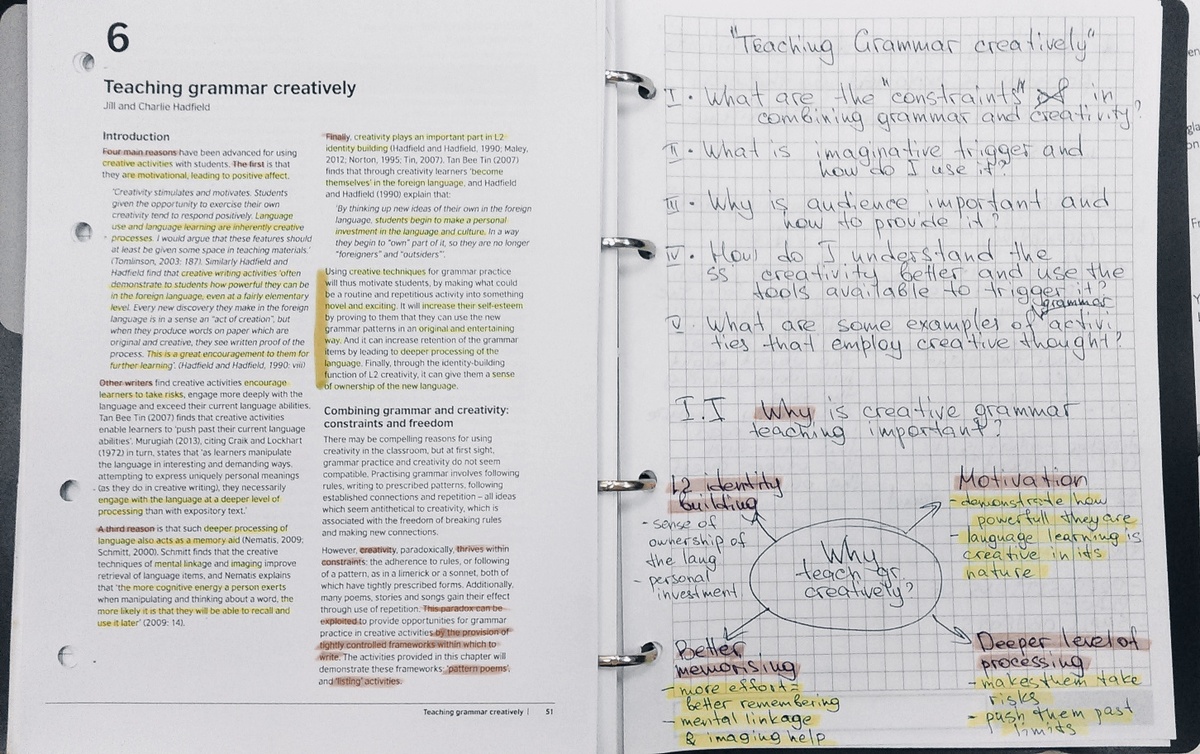 6
Teaching grammar creatively
Jill and Charlie Hadfield
Introduction
Four main reasons have been advanced for using
creative activities with students. The first is that
they are motivational, leading to positive affect.
'Creativity stimulates and motivates. Students
given the opportunity to exercise their own
creativity tend to respond positively. Language
use and language learning are inherently creative
processes. I would argue that these features should
at least be given some space in teaching materials.'
(Tomlinson, 2003: 187). Similarly Hadfield and
Hadfield find that creative writing activities 'often
demonstrate to students how powerful they can be
in the foreign language, even at a fairly elementary
level. Every new discovery they make in the foreign
language is in a sense an "act of creation", but
when they produce words on paper which are
original and creative, they see written proof of the
process. This is a great encouragement to them for
further learning'. (Hadfield and Hadfield, 1990: viii)
Other writers find creative activities encourage
learners to take risks, engage more deeply with the
language and exceed their current language abilities.
Tan Bee Tin (2007) finds that creative activities
enable learners to 'push past their current language
abilities'. Murugiah (2013), citing Craik and Lockhart
(1972) in turn, states that 'as learners manipulate
the language in interesting and demanding ways,
attempting to express uniquely personal meanings
(as they do in creative writing), they necessarily
engage with the language at a deeper level of
processing than with expository text.'
A third reason is that such deeper processing of
language also acts as a memory aid (Nematis, 2009;
Schmitt, 2000). Schmitt finds that the creative
techniques of mental linkage and imaging improve
retrieval of language items, and Nematis explains
that 'the more cognitive energy a person exerts
when manipulating and thinking about a word, the
more likely it is that they will be able to recall and
use it later' (2009: 14).
Finally, creativity plays an important part in L2
identity building (Hadfield and Hadfield, 1990; Maley,
2012; Norton, 1995; Tin, 2007). Tan Bee Tin (2007)
finds that through creativity learners 'become
themselves' in the foreign language, and Hadfield
and Hadfield (1990) explain that:
'By thinking up new ideas of their own in the foreign
language, students begin to make a personal
investment in the language and culture. In a way
they begin to "own" part of it, so they are no longer
"foreigners" and "outsiders"'.
Using creative techniques for grammar practice
will thus motivate students, by making what could
be a routine and repetitious activity into something
novel and exciting. It will increase their self-esteem
by proving to them that they can use the new
grammar patterns in an original and entertaining
way. And it can increase retention of the grammar
items by leading to deeper processing of the
language. Finally, through the identity-building
function of L2 creativity, it can give them a sense
of ownership of the new language.
Combining grammar and creativity:
constraints and freedom
There may be compelling reasons for using
creativity in the classroom, but at first sight,
grammar practice and creativity do not seem
compatible. Practising grammar involves following
rules, writing to prescribed patterns, following
established connections and repetition – all ideas
which seem antithetical to creativity, which is
associated with the freedom of breaking rules
and making new connections.
However, creativity, paradoxically, thrives within
constraints: the adherence to rules, or following
of a pattern, as in a limerick or a sonnet, both of
which have tightly prescribed forms. Additionally,
many poems, stories and songs gain their effect
through use of repetition. This paradox can be
exploited to provide opportunities for grammar
practice in creative activities by the provision of
tightly controlled frameworks within which to
write. The activities provided in this chapter will
demonstrate these frameworks: 'pattern poems',
and 'listing' activities.
Teaching grammar creatively | 51
"Teaching Grammar creatively"
I. What are the "constraints" in
combining grammar and creativity?
II. What is imaginative trigger and
how do I use it?
III. Why is audience important and
how to provide it?
IV. How do I understand the
ss' creativity better and use the
tools available to trigger it?
grammar
V. What are some examples of activi
ties that employ creative thought?
I.I Why is creative grammar
teaching important?
L2 identity
building
- sense of
ownership of
the lang
- personal
investment
Motivation
- demonstrate how
powerfull they are
- language learning is
creative in its
nature
Why
teach gr
creatively?
Better
memorising
- more effort=
better remembering
- mental linkage
& imaging help
Deeper level of
processing
- makes them take
risks
- push them past
limits